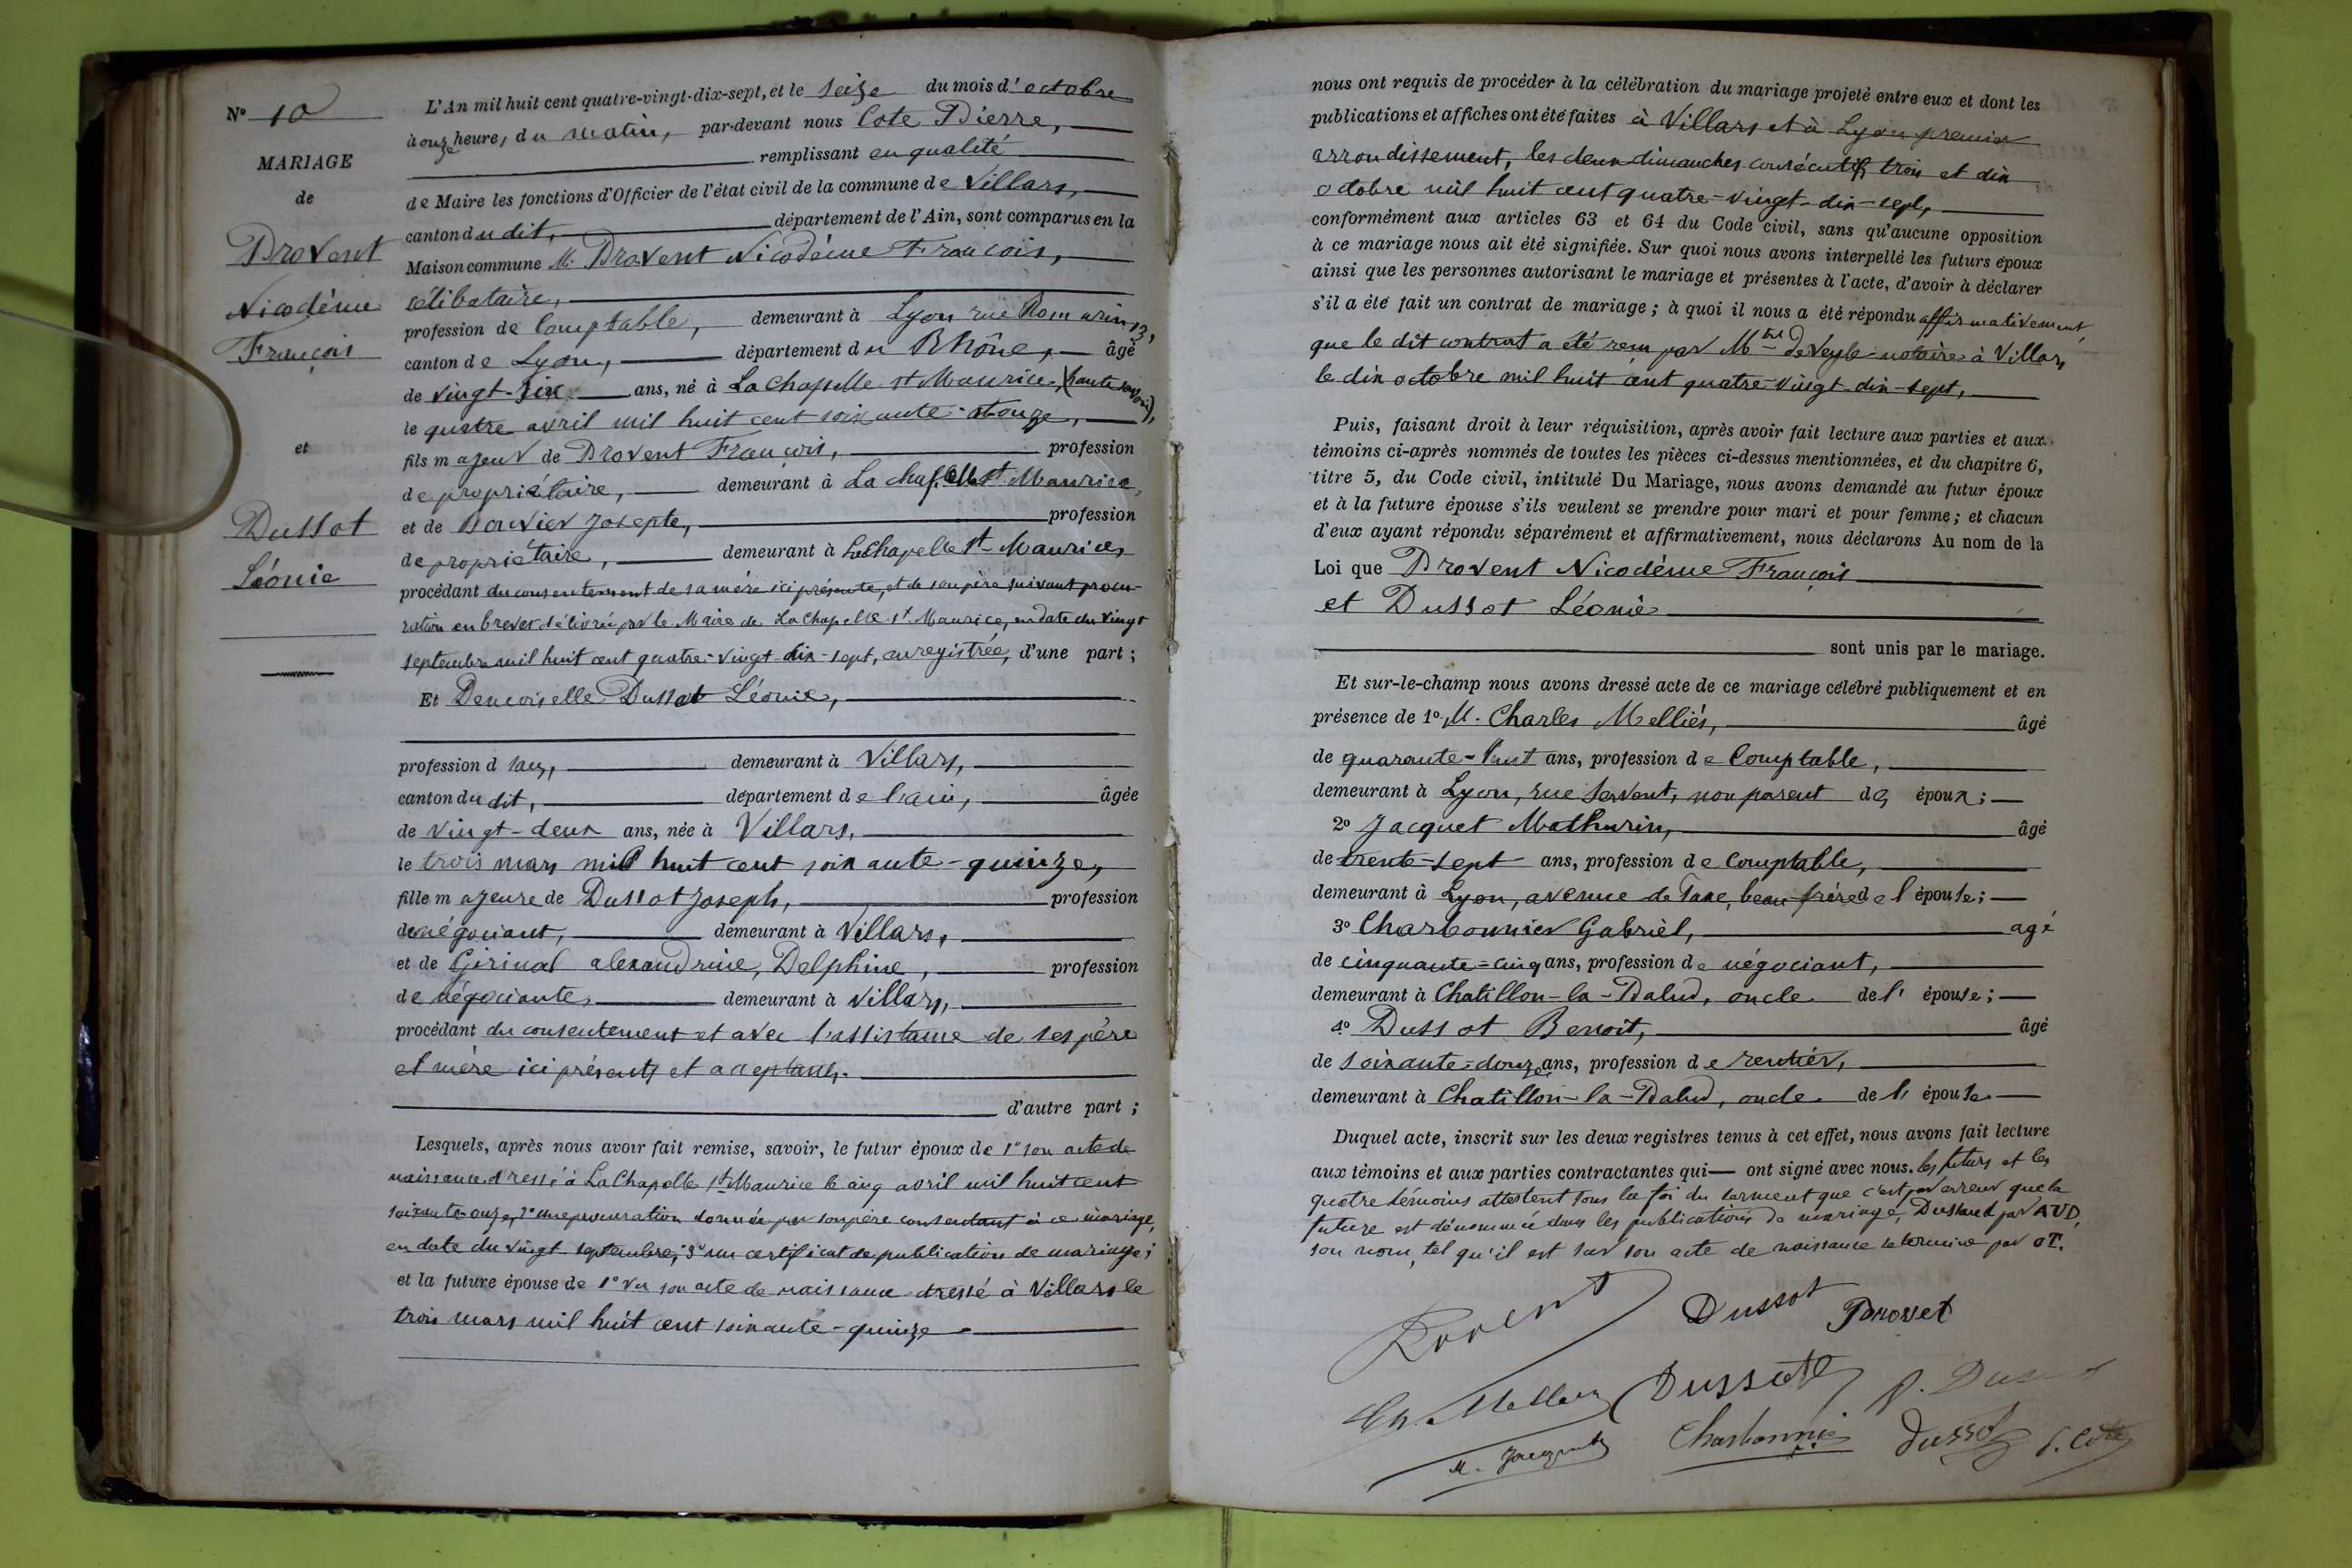 N° 10
MARIAGE
de
Provent
Nicodème
François
et
Dussot
Léonie
L'An mil huit cent quatre-vingt-dix-sept, et le seize du mois d'octobre
à onze heure, du matin, par-devant nous Cote Pierre,
remplissant en qualité
de Maire les fonctions d'Officier de l'état civil de la commune de Villars,
canton du dit, département de l'Ain, sont comparus en la
Maison commune M. Provent Nicodème François,
célibataire,
profession de Comptable, demeurant à Lyon rue Romarin 13,
canton de Lyon, département du Rhône, âgé
de vingt-six ans, né à La Chapelle St Maurice, (haute savoie),
le quatre avril mil huit cent soixante-et onze,
fils majeur de Provent François, profession
de propriétaire, demeurant à La chapelle St Maurice,
et de Bouvier Josepte, profession
de propriétaire, demeurant à La Chapelle St-Maurice,
procédant du consentement de sa mère ici présente, et de son père suivant procu-
ration en brevet délivrée par le Maire de La Chapelle St Maurice, en date du vingt
septembre mil huit cent quatre-vingt-dix-sept, enregistrée, d'une part ;
Et Demoiselle Dussot Léonie,
profession d sans, demeurant à Villars,
canton du dit, département de l'ain, âgée
de vingt-deux ans, née à Villars,
le trois mars mil huit cent soixante-quinze,
fille majeure de Dussot Joseph, profession
de négociant, demeurant à Villars,
et de alexandrine, Delphine, profession
de négociante, demeurant à Villars,
procédant du consentement et avec l'assistance de ses père
et mère ici présents et acceptants.
d'autre part ;
Lesquels, après nous avoir fait remise, savoir, le futur époux de 1° son acte de
naissance dressé à La Chapelle St Maurice le cinq avril mil huit cent
soixante-onze, 2° une procuration donnée par son père consentant à ce mariage,
en date du vingt septembre; 3° un certificat de publication de mariage;
et la future épouse de 1° vu son acte de naissance dressé à Villars le
trois mars mil huit cent soixante-quinze.
nous ont requis de procéder à la célébration du mariage projeté entre eux et dont les
publications et affiches ont été faites à Villars et à Lyon premier
arrondissement, les deux dimanches consécutifs, trois et dix
octobre mil huit cent quatre-vingt-dix-sept,
conformément aux articles 63 et 64 du Code civil, sans qu'aucune opposition
à ce mariage nous ait été signifiée. Sur quoi nous avons interpellé les futurs époux
ainsi que les personnes autorisant le mariage et présentes à l'acte, d'avoir à déclarer
s'il a été fait un contrat de mariage ; à quoi il nous a été répondu affirmativement,
que le dit contrat a été reçu par Mtre de Veyle notaire à Villars
le dix octobre mil huit cent quatre-vingt-dix-sept,
Puis, faisant droit à leur réquisition, après avoir fait lecture aux parties et aux
témoins ci-après nommés de toutes les pièces ci-dessus mentionnées, et du chapitre 6,
titre 5, du Code civil, intitulé Du Mariage, nous avons demandé au futur époux
et à la future épouse s'ils veulent se prendre pour mari et pour femme ; et chacun
d'eux ayant répondu séparément et affirmativement, nous déclarons Au nom de la
Loi que Provent Nicodème François
et Dussot Léonie
sont unis par le mariage.
Et sur-le-champ nous avons dressé acte de ce mariage célébré publiquement et en
présence de 1° M. Charles Melliès, âgé
de quarante-huit ans, profession de Comptable,
demeurant à Lyon, rue Servant, non parent des époux ;
2° Jacquet Mathurin, âgé
de trente-sept ans, profession de comptable,
demeurant à Lyon, avenue de Saxe, beau frère de l'épouse ;
3° Charbonnier Gabriel, agé
de cinquante-cinq ans, profession de négociant,
demeurant à Chatillon-la-Palud, oncle de l' épouse ;
4° Dussot Benoit, âgé
de soixante-douze ans, profession de rentier,
demeurant à Chatillon-la-Palud, oncle de l' épouse
Duquel acte, inscrit sur les deux registres tenus à cet effet, nous avons fait lecture
aux témoins et aux parties contractantes qui ont signé avec nous. les futurs et les
quatre témoins attestent sous la foi du serment que c'est par erreur que la
future est dénommée dans les publications de mariage, Dussaud par AUD,
son nom, tel qu'il est sur son acte de naissance se termine par OT.
Provent Dussot Provet
Ch. Melliès Dussot J. Dussot
M. Jacquet Charbonnier Dussot P. Cote